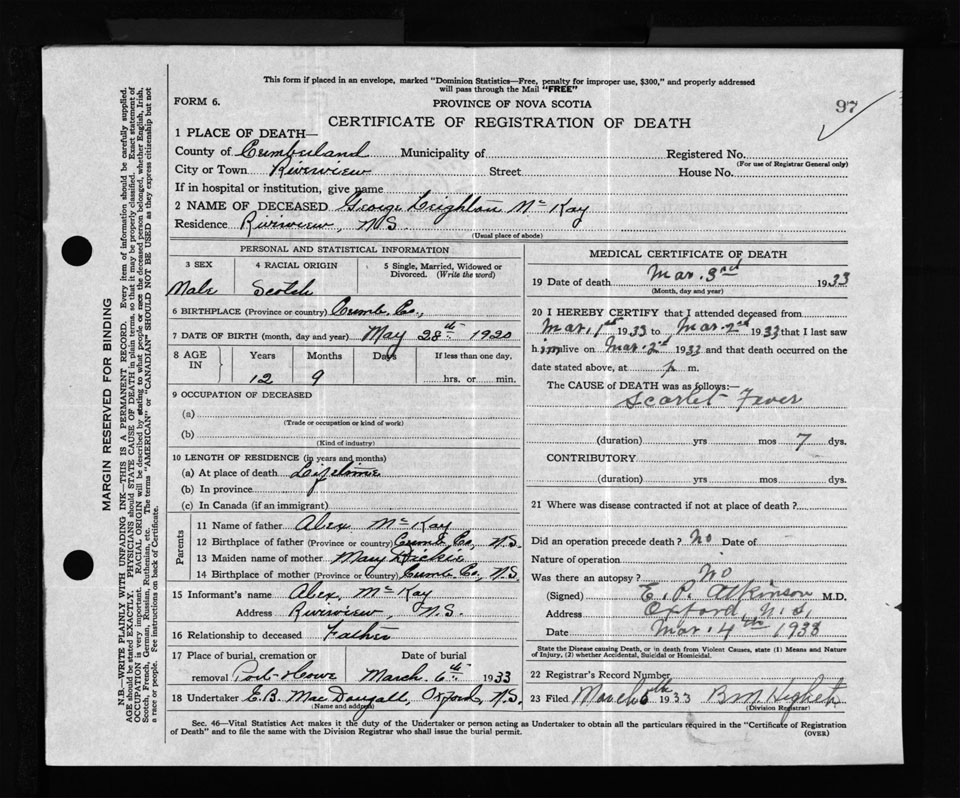 This form if placed in an envelope, marked "Dominion Statistics—Free, penalty for improper use, $300," and properly addressed
will pass through the Mail "FREE"
FORM 6.
PROVINCE OF NOVA SCOTIA
97
CERTIFICATE OF REGISTRATION OF DEATH
1 PLACE OF DEATH—
County of Cumberland Municipality of Registered No.
(For use of Registrar General only)
City or Town Riverview Street House No.
If in hospital or institution, give name
2 NAME OF DECEASED George Leighton McKay
Residence Riverview, N.S.
(Usual place of abode)
PERSONAL AND STATISTICAL INFORMATION
3 SEX 4 RACIAL ORIGIN 5 Single, Married, Widowed or Divorced. (Write the word)
Male Scotch
6 BIRTHPLACE (Province or country) Cumb. Co.,
7 DATE OF BIRTH (month, day and year) May 28th 1920
8 AGE IN Years Months Days If less than one day,
12 9 hrs. or min.
9 OCCUPATION OF DECEASED
(a)
(Trade or occupation or kind of work)
(b)
(Kind of industry)
10 LENGTH OF RESIDENCE (in years and months)
(a) At place of death Lifetime
(b) In province
(c) In Canada (if an immigrant)
Parents
11 Name of father Alex McKay
12 Birthplace of father (Province or country) Cumb. Co., N.S.
13 Maiden name of mother Mary Dickie
14 Birthplace of mother (Province or country) Cumb. Co., N.S.
15 Informant's name Alex. McKay
Address Riverview, N.S.
16 Relationship to deceased Father
17 Place of burial, cremation or Date of burial
removal Port-Howe March 6th 1933
18 Undertaker E.B. MacDougall, Oxford, N.S.
(Name and address)
MEDICAL CERTIFICATE OF DEATH
19 Date of death Mar. 3rd 1933
(Month, day and year)
20 I HEREBY CERTIFY that I attended deceased from
Mar. 1st 1933 to Mar. 2nd 1933 that I last saw
him alive on Mar. 2nd 1933 and that death occurred on the
date stated above, at p m.
The CAUSE of DEATH was as follows:—
Scarlet Fever
(duration) yrs mos 7 dys.
CONTRIBUTORY
(duration) yrs mos dys.
21 Where was disease contracted if not at place of death?
Did an operation precede death? No Date of
Nature of operation
Was there an autopsy? No
(Signed) E. P. Atkinson M.D.
Address Oxford, N.S.
Date Mar. 4th 1933
State the Disease causing Death, or in death from Violent Causes, state (1) Means and Nature
of Injury, (2) whether Accidental, Suicidal or Homicidal.
22 Registrar's Record Number
23 Filed March 1933
(Division Registrar)
Sec. 46—Vital Statistics Act makes it the duty of the Undertaker or person acting as Undertaker to obtain all the particulars required in the "Certificate of Registration
of Death" and to file the same with the Division Registrar who shall issue the burial permit.
(OVER)
MARGIN RESERVED FOR BINDING
N.B.—WRITE PLAINLY WITH UNFADING INK—THIS IS A PERMANENT RECORD. Every item of information should be carefully supplied.
AGE should be stated EXACTLY. PHYSICIANS should STATE CAUSE OF DEATH in plain terms, so that it may be properly classified. Exact statement of
OCCUPATION is very important. RACIAL ORIGIN will be described by stating to what people or race the deceased person belonged, whether English, Irish,
Scotch, French, German, Russian, Ruthenian, etc. The terms "AMERICAN" or "CANADIAN" SHOULD NOT BE USED as they express citizenship but not
a race or people. See instructions on back of Certificate.